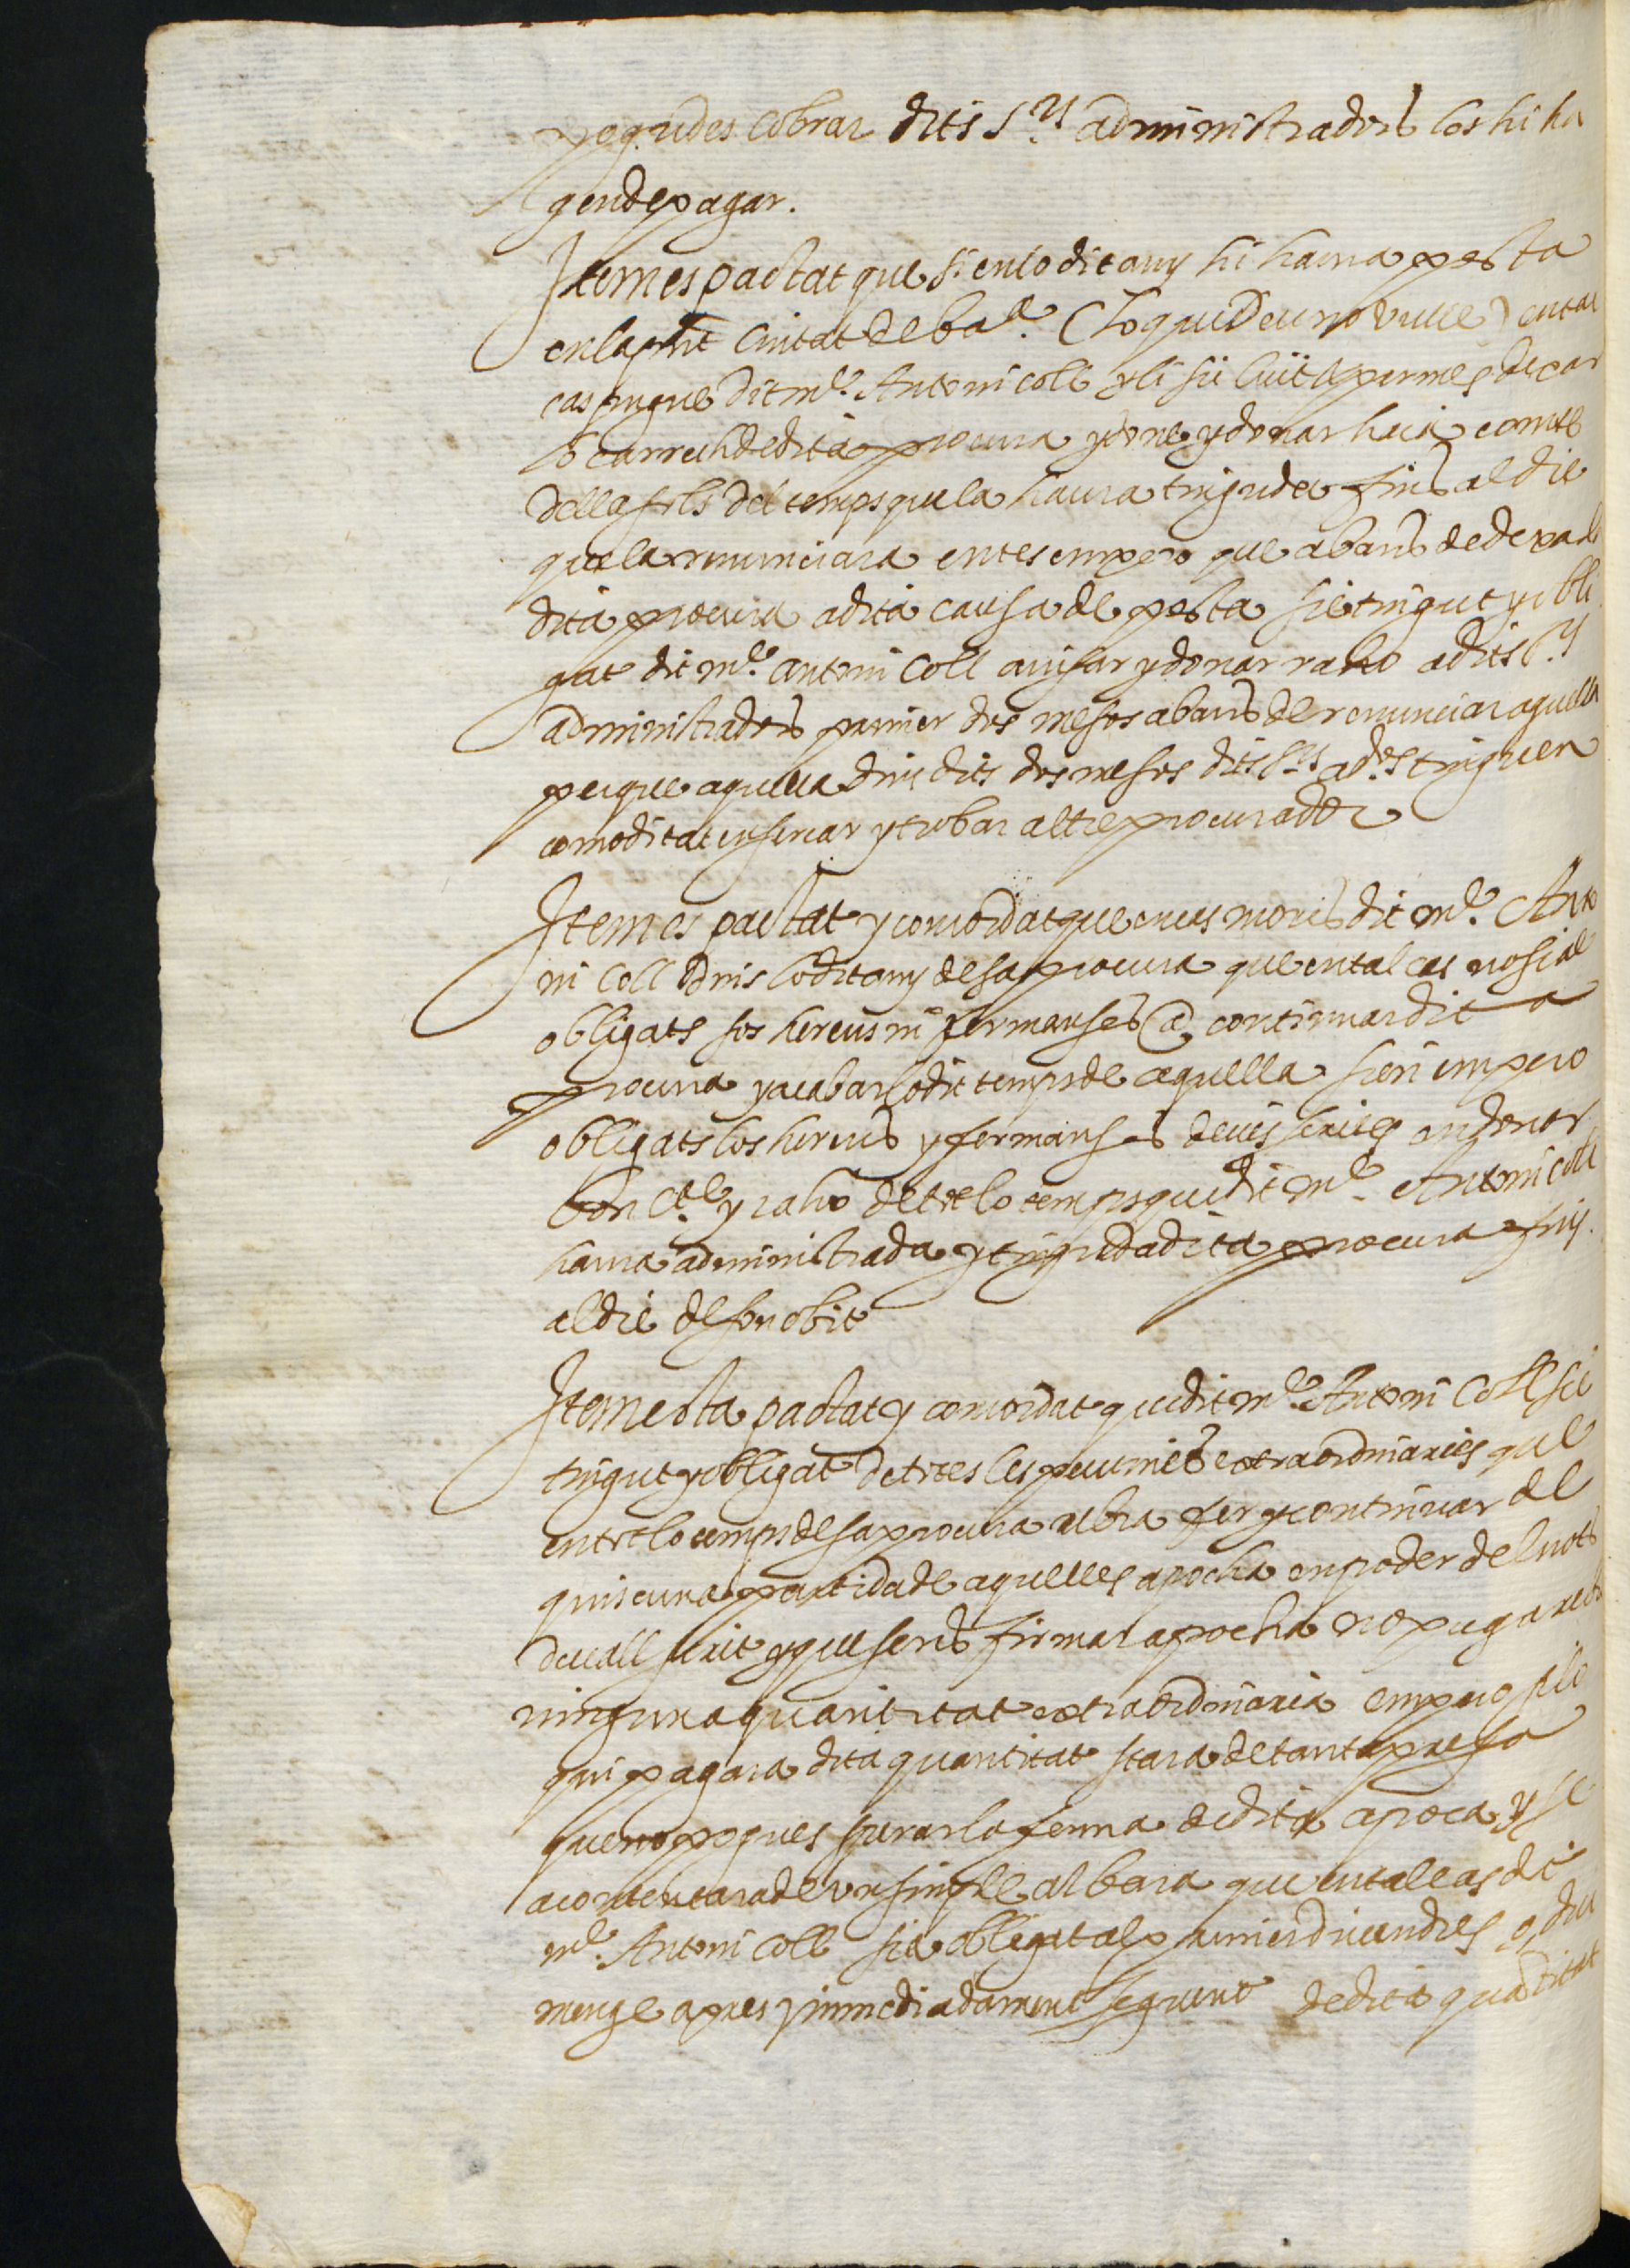 pogudes cobrar dits S.rs administradors los hi ha
gen de pagar.
Item es pactat que si en lo dit any hi haura pesta
en la pnt Ciutat de Bar.a (lo que Deu no vulle) en tal
cas pugue dit m.o Antoni Coll y li sie licit y permes dexar
lo carrech de dita procura y done y donar haia compte
de ella sols del temps que la haura tinguda fins al die
que la renunciara entes empero que abans de dexar la
dita procura a dita causa de pesta sie tingut y obli
gat dit m.o Antoni Coll auisar y donar raho a dits S.rs
administradors primer dos mesos abans de renunciar aquella
perque aquella dins dits dos mesos dits S.rs ad.ors tinguen
comoditat en sercar y trobar altre procurador
Item es pactat y concordat que en cas moris dit m.o Anto
ni Coll dins lo dit any de sa procura que en tal cas no sie
obligats sos hereus ni fermanses a continuar dita
procura y acabar lo dit temps de aquella sien empero
obligats los hereus y fermanses deuis scrites en donar
bon c.te y raho de tot lo temps que dit m.o Antoni Coll
haura administrada y tinguda dita procura fins
al die de son obit
Item esta pactat y concordat que dit m.o Antoni Coll sie
tingut y obligat de totes les pecunies extraordinaries que
en tot lo temps de sa procura rebra fer y continuar de
quiscuna partida de aquelles apocha en poder del not.
deuall scrit y que sens firmar apocha no puga rebre
ninguna quantitat extraordinaria empero si lo
qui pagara dita quantitat stara de tanta pressa
que no pogues sperar la ferma de dita apoca y se
acontentara de un simple albara que en tal cas dit
m.o Antoni Coll sie obligat al primer diuendres o diu
menge apres y immediadament seguent de dita quantitat